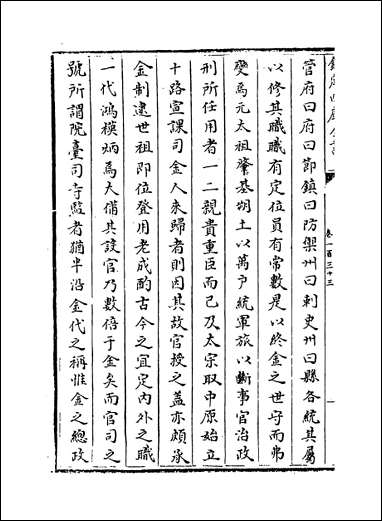 欽定四庫全書
卷一百三十三
管府曰府曰節鎮曰防禦州曰刺史州曰縣各統其屬
以修其職職有定位員有常數是以終金之世守而弗
變焉元太祖肇基朔土以萬户統軍旅以斷事官治政
刑所任用者一二親貴重臣而已及太宗取中原始立
十路宣課司金人來歸者則因其故官授之蓋亦頗承
金制逮世祖即位登用老成酌古今之宜定内外之職
一代鴻模炳焉大備其設官乃數倍于金矣而官司之
號所謂院臺司寺監者猶半沿金代之稱惟金之總政